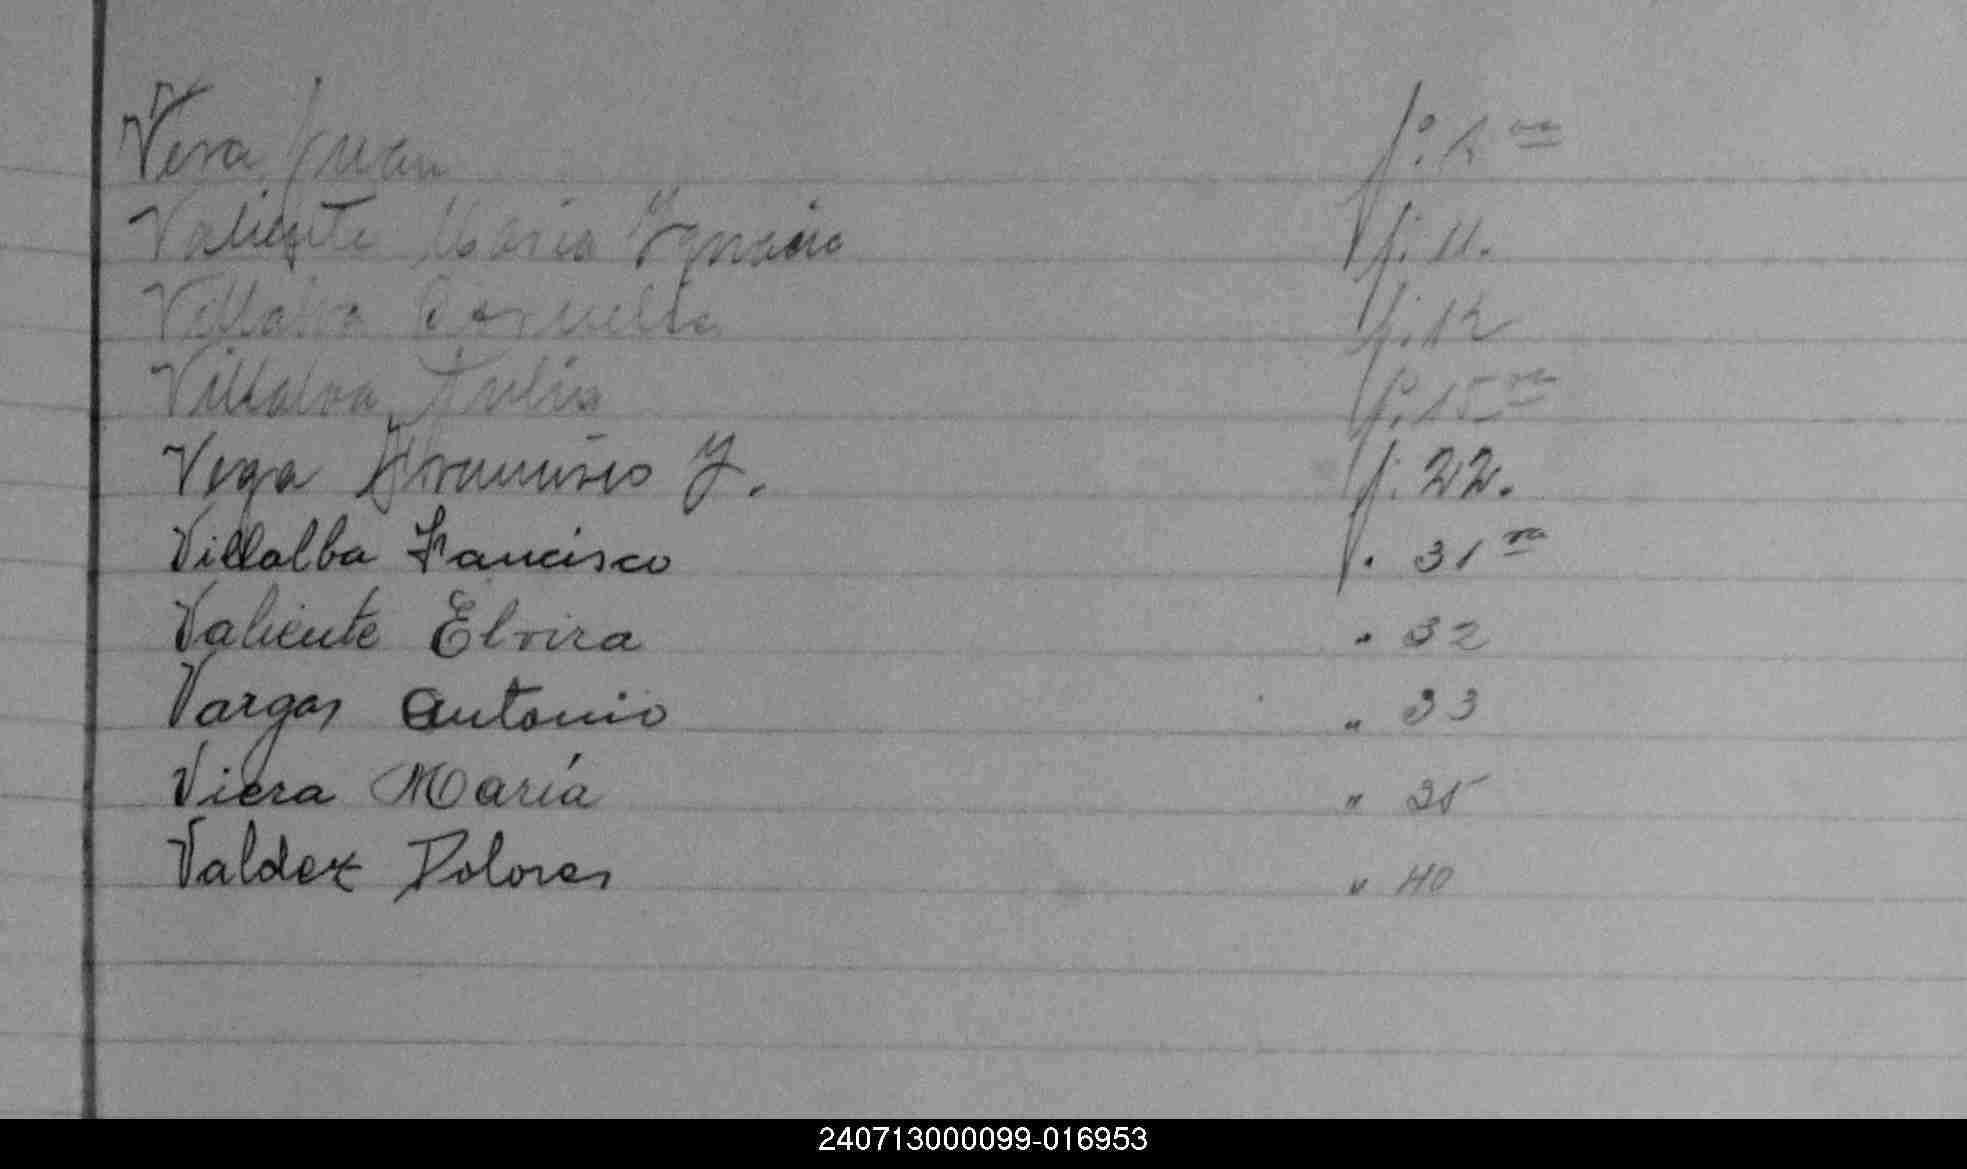 Vera Juan fº. 2 va
Valiente Maria Ygnacia f. 11.
Villalva f. 12
Villalva Julia f. 15 va
Vega Francisco Y. f. 22.
Villalba Francisco f. 31 va
Valiente Elvira " 32
Vargas Antonio " 33
Viera María " 35
Valdez Dolores " 40
240713000099-016953